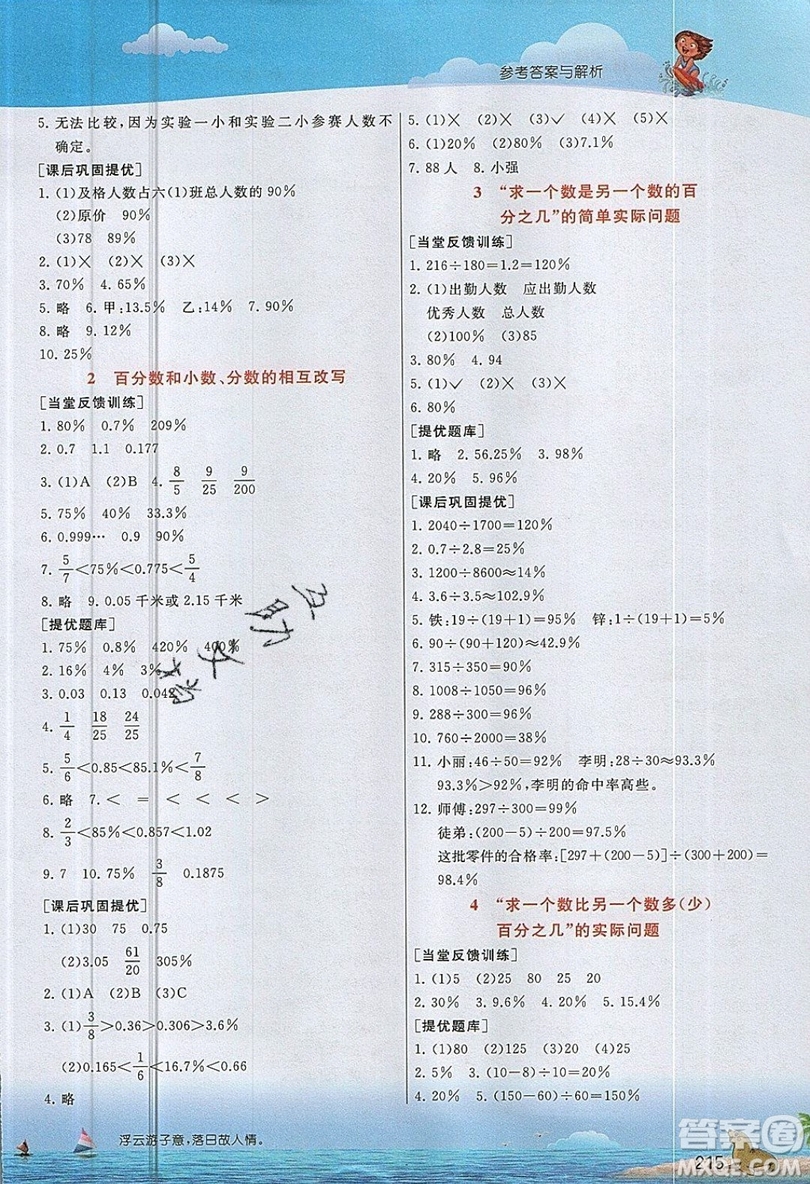 参考答案与解析
5. 无法比较,因为实验一小和实验二小参赛人数不
确定。
[课后巩固提优]
1. (1)及格人数占六(1)班总人数的 90%
(2)原价 90%
(3)78 89%
2. (1)✕ (2)✕ (3)✕
3. 70% 4. 65%
5. 略 6. 甲:13.5% 乙:14% 7. 90%
8. 略 9. 12%
10. 25%
2 百分数和小数、分数的相互改写
[当堂反馈训练]
1. 80% 0.7% 209%
2. 0.7 1.1 0.177
3. (1)A (2)B 4. 8/5 9/25 9/200
5. 75% 40% 33.3%
6. 0.999… 0.9 90%
7. 5/7<75%<0.775<5/4
8. 略 9. 0.05 千米或 2.15 千米
[提优题库]
1. 75% 0.8% 420% 400%
2. 16% 4% 3%
3. 0.03 0.13 0.042
4. 1/4 18/25 24/25
5. 5/6<0.85<85.1%<7/8
6. 略 7. < = < < < >
8. 2/3<85%<0.857<1.02
9. 7 10. 75% 3/8 0.1875
[课后巩固提优]
1. (1)30 75 0.75
(2)3.05 61/20 305%
2. (1)A (2)B (3)C
3. (1)3/8>0.36>0.306>3.6%
(2)0.165<1/6<16.7%<0.66
4. 略
5. (1)✕ (2)✕ (3)✓ (4)✕ (5)✕
6. (1)20% (2)80% (3)7.1%
7. 88 人 8. 小强
3 “求一个数是另一个数的百
分之几”的简单实际问题
[当堂反馈训练]
1. 216÷180=1.2=120%
2. (1)出勤人数 应出勤人数
优秀人数 总人数
(2)100% (3)85
3. 80% 4. 94
5. (1)✓ (2)✕ (3)✓
6. 80%
[提优题库]
1. 略 2. 56.25% 3. 60%
4. 20% 5. 96%
[课后巩固提优]
1. 2040÷1700=120%
2. 0.7÷2.8=25%
3. 1200÷8600≈14%
4. 3.6÷3.5≈102.9%
5. 铁:19÷(19+1)=95% 锌:1÷(19+1)=5%
6. 90÷(90+120)≈42.9%
7. 315÷350=90%
8. 1008÷1050=96%
9. 288÷300=96%
10. 760÷2000=38%
11. 小丽:46÷50=92% 李明:28÷30≈93.3%
93.3%>92%,李明的命中率高些。
12. 师傅:297÷300=99%
徒弟:(200-5)÷200=97.5%
这批零件的合格率:[297+(200-5)]÷(300+200)=
98.4%
4 “求一个数比另一个数多(少)
百分之几”的实际问题
[当堂反馈训练]
1. (1)5 (2)25 80 25 20
2. 30% 3. 9.6% 4. 20% 5. 15.4%
[提优题库]
1. (1)80 (2)125 (3)20 (4)25
2. 5% 3. (10-8)÷10=20%
4. 20% 5. (150-60)÷60=150%
浮云游子意,落日故人情。
215
答案圈
MXQE.COM